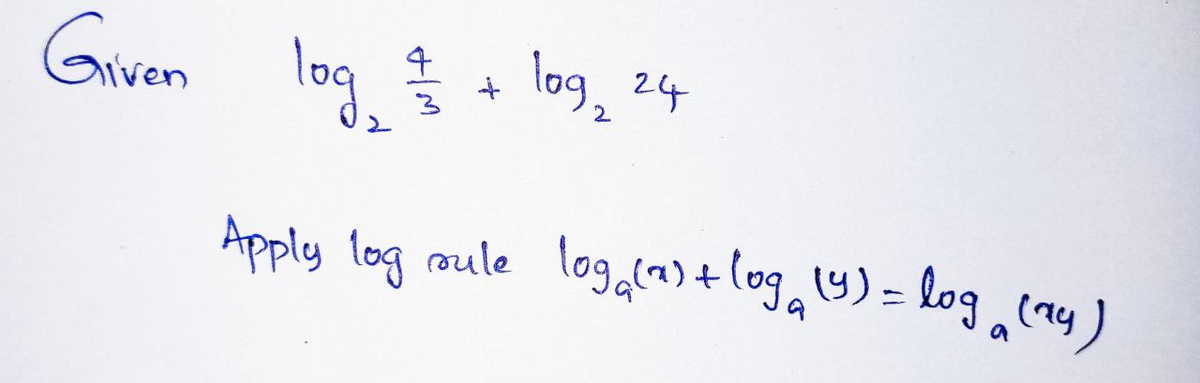 Given log₂ 4/3 + log₂ 24
Apply log rule logₐ(x) + logₐ(y) = logₐ(xy)